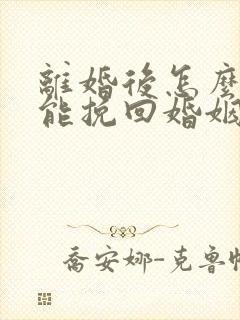 離婚後怎麼
能挽回婚姻
喬安娜-克魯